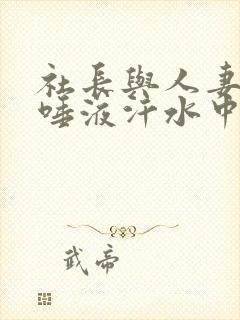 社長與人妻
唾液汗水中
武帝